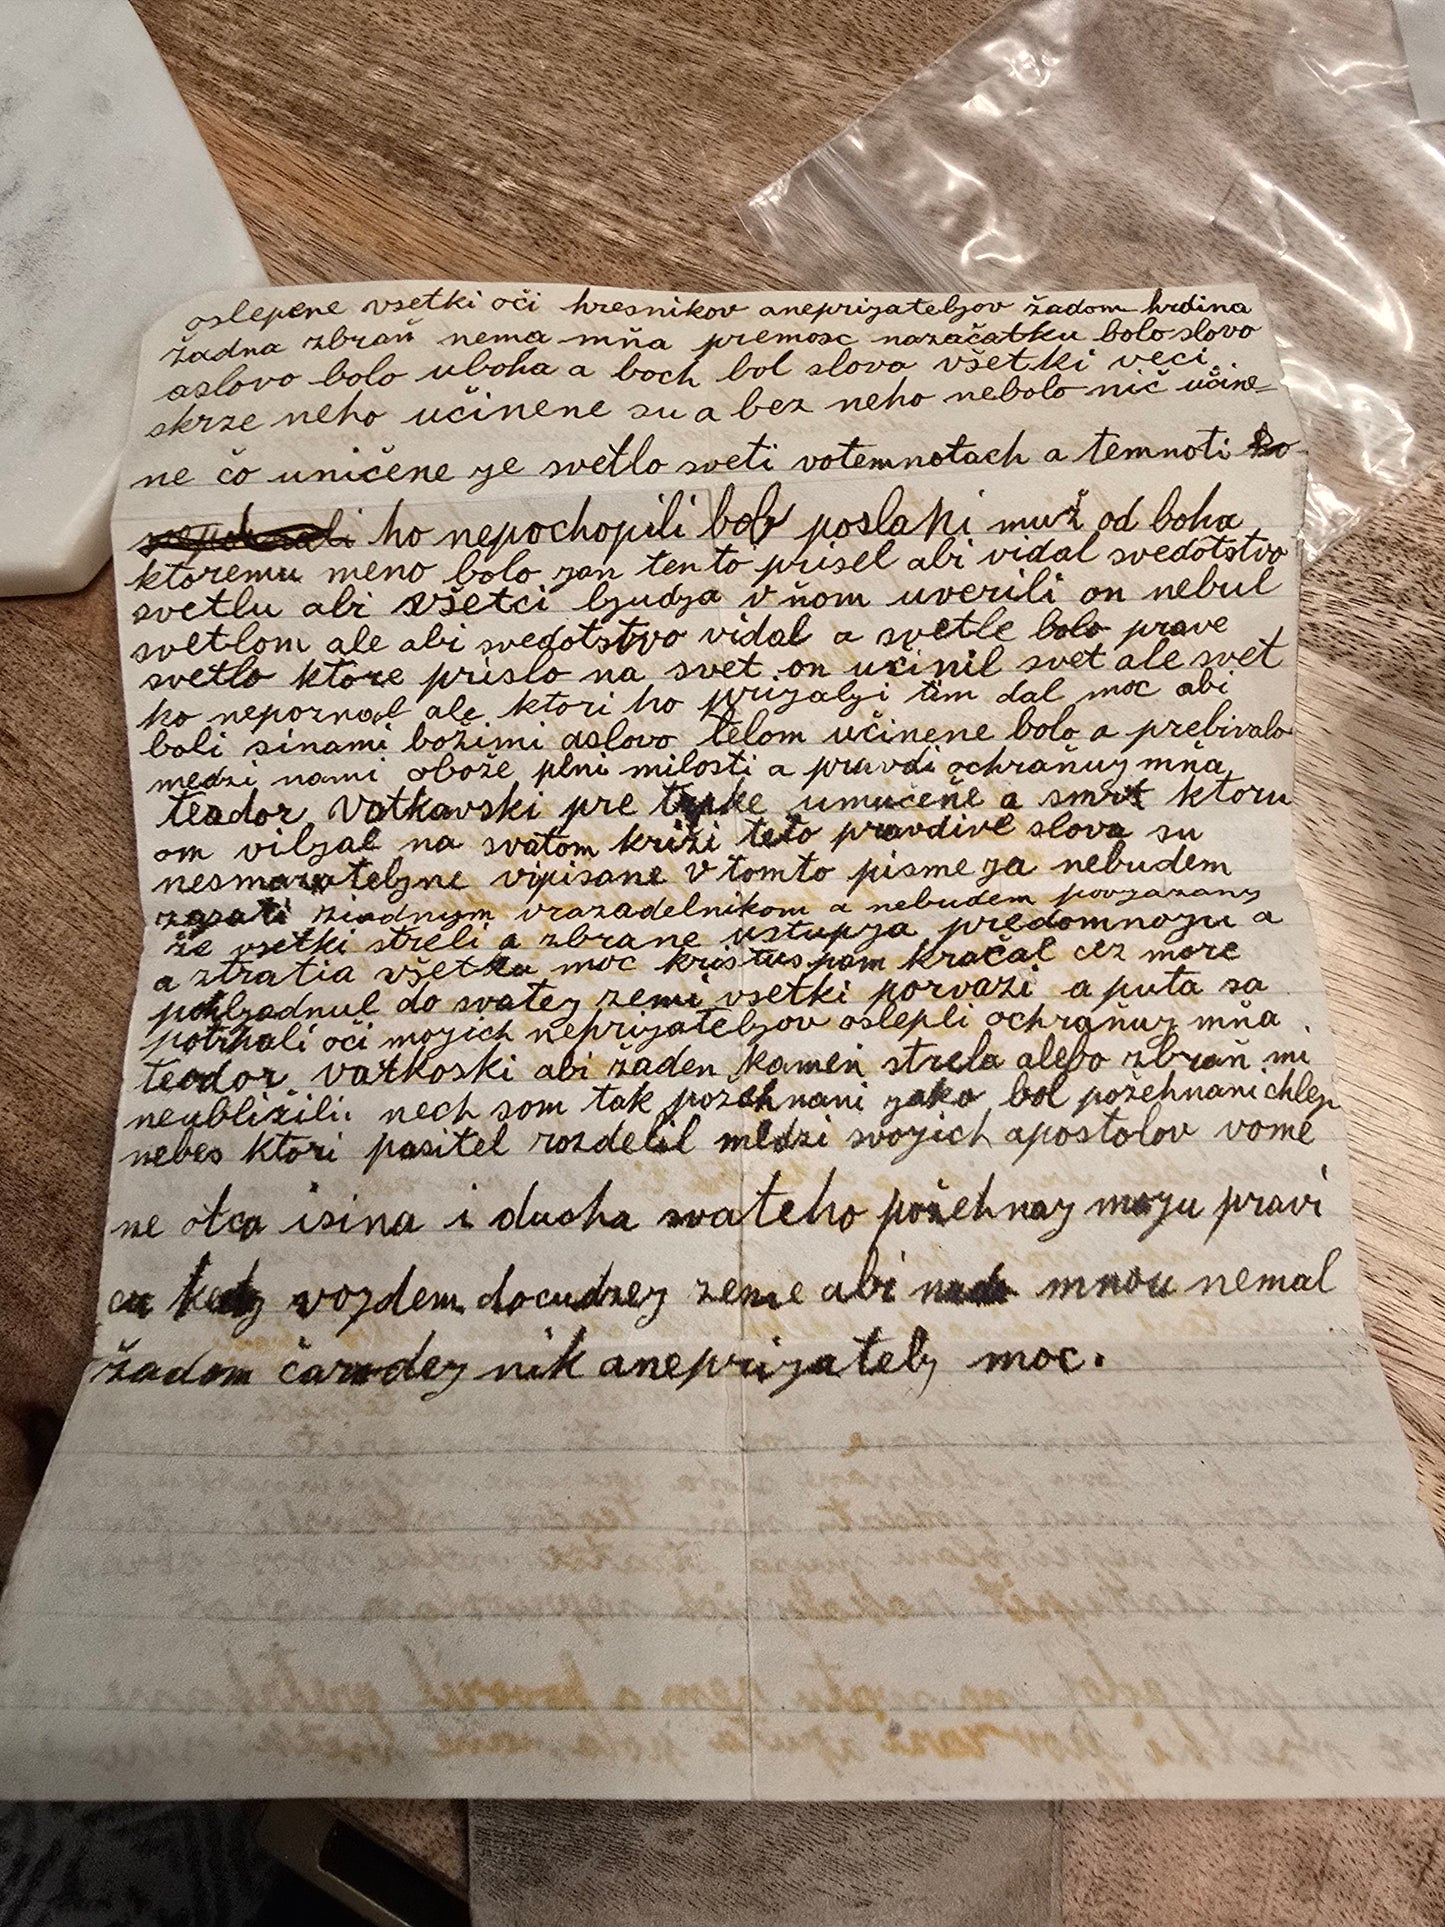 oslepene vsetki oči hresnikov anepriyatelyov žadom hrdina
žadna zbraň nema mňa premosc nazačatku bolo slovo
aslovo bolo uboha a boch bol slovo všetki veci
skrze neho učinene su a bez neho nebolo nič učine-
ne čo uničene ye svetlo sveti votemnotach a temnoti
ho nepochopili bol poslani muž od boha
ktoremu meno bolo yan tento prisel abi vidal svedotstvo
svetlu abi všetci lyudya vňom uverili on nebul
svetlom ale abi svedotstvo vidal a svetle bolo prave
svetlo ktore prislo na svet on učinil svet ale svet
ho nepoznal ale ktori ho priyalyi tim dal moc abi
boli sinami božimi aslovo telom učinene bolo a prebivalo
medzi nami obože plni milosti a pravdi ochraňuy mňa
teador Vatkavski pre umučeňe a smrt ktoru
om vilyal na svatom križi teto pravdive slova su
nesmazatelyne vipisane v tomto pisme ya nebudem
žiadnym vrazadelnikom a nebudem povyazany
že vsetki streli a zbrane ustupya predomnoyu a
a ztratia všetku moc kristus pam kračal cez more
pohlyadnul do svatey zemi vsetki porvazi a puta sa
potrhali oči moyich nepriyatelyov oslepli ochraňuy mňa
teodor vatkoski abi žaden kameň strela alebo zbraň mi
neubližili. nech som tak požehnani yako bol požehnani chlep
nebes ktori pasitel rozdelil medzi svoyich apostolov vome
ne otca isina i ducha svateho požehnay moyu pravi
cu kedy voydem docudzey zeme abi mnou nemal
žadom čarodey nik anepriyately moc.